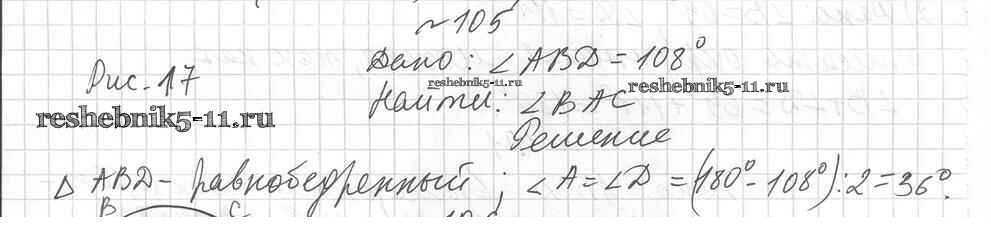 ~ 105
Дано: ∠ABD = 108°
Рис. 17
reshebnik5-11.ru
reshebnik5-11.ru
Найти: ∠BAC
reshebnik5-11.ru
Решение
Δ ABD - равнобедренный; ∠A = ∠D = (180° - 108°) : 2 = 36°.
B C